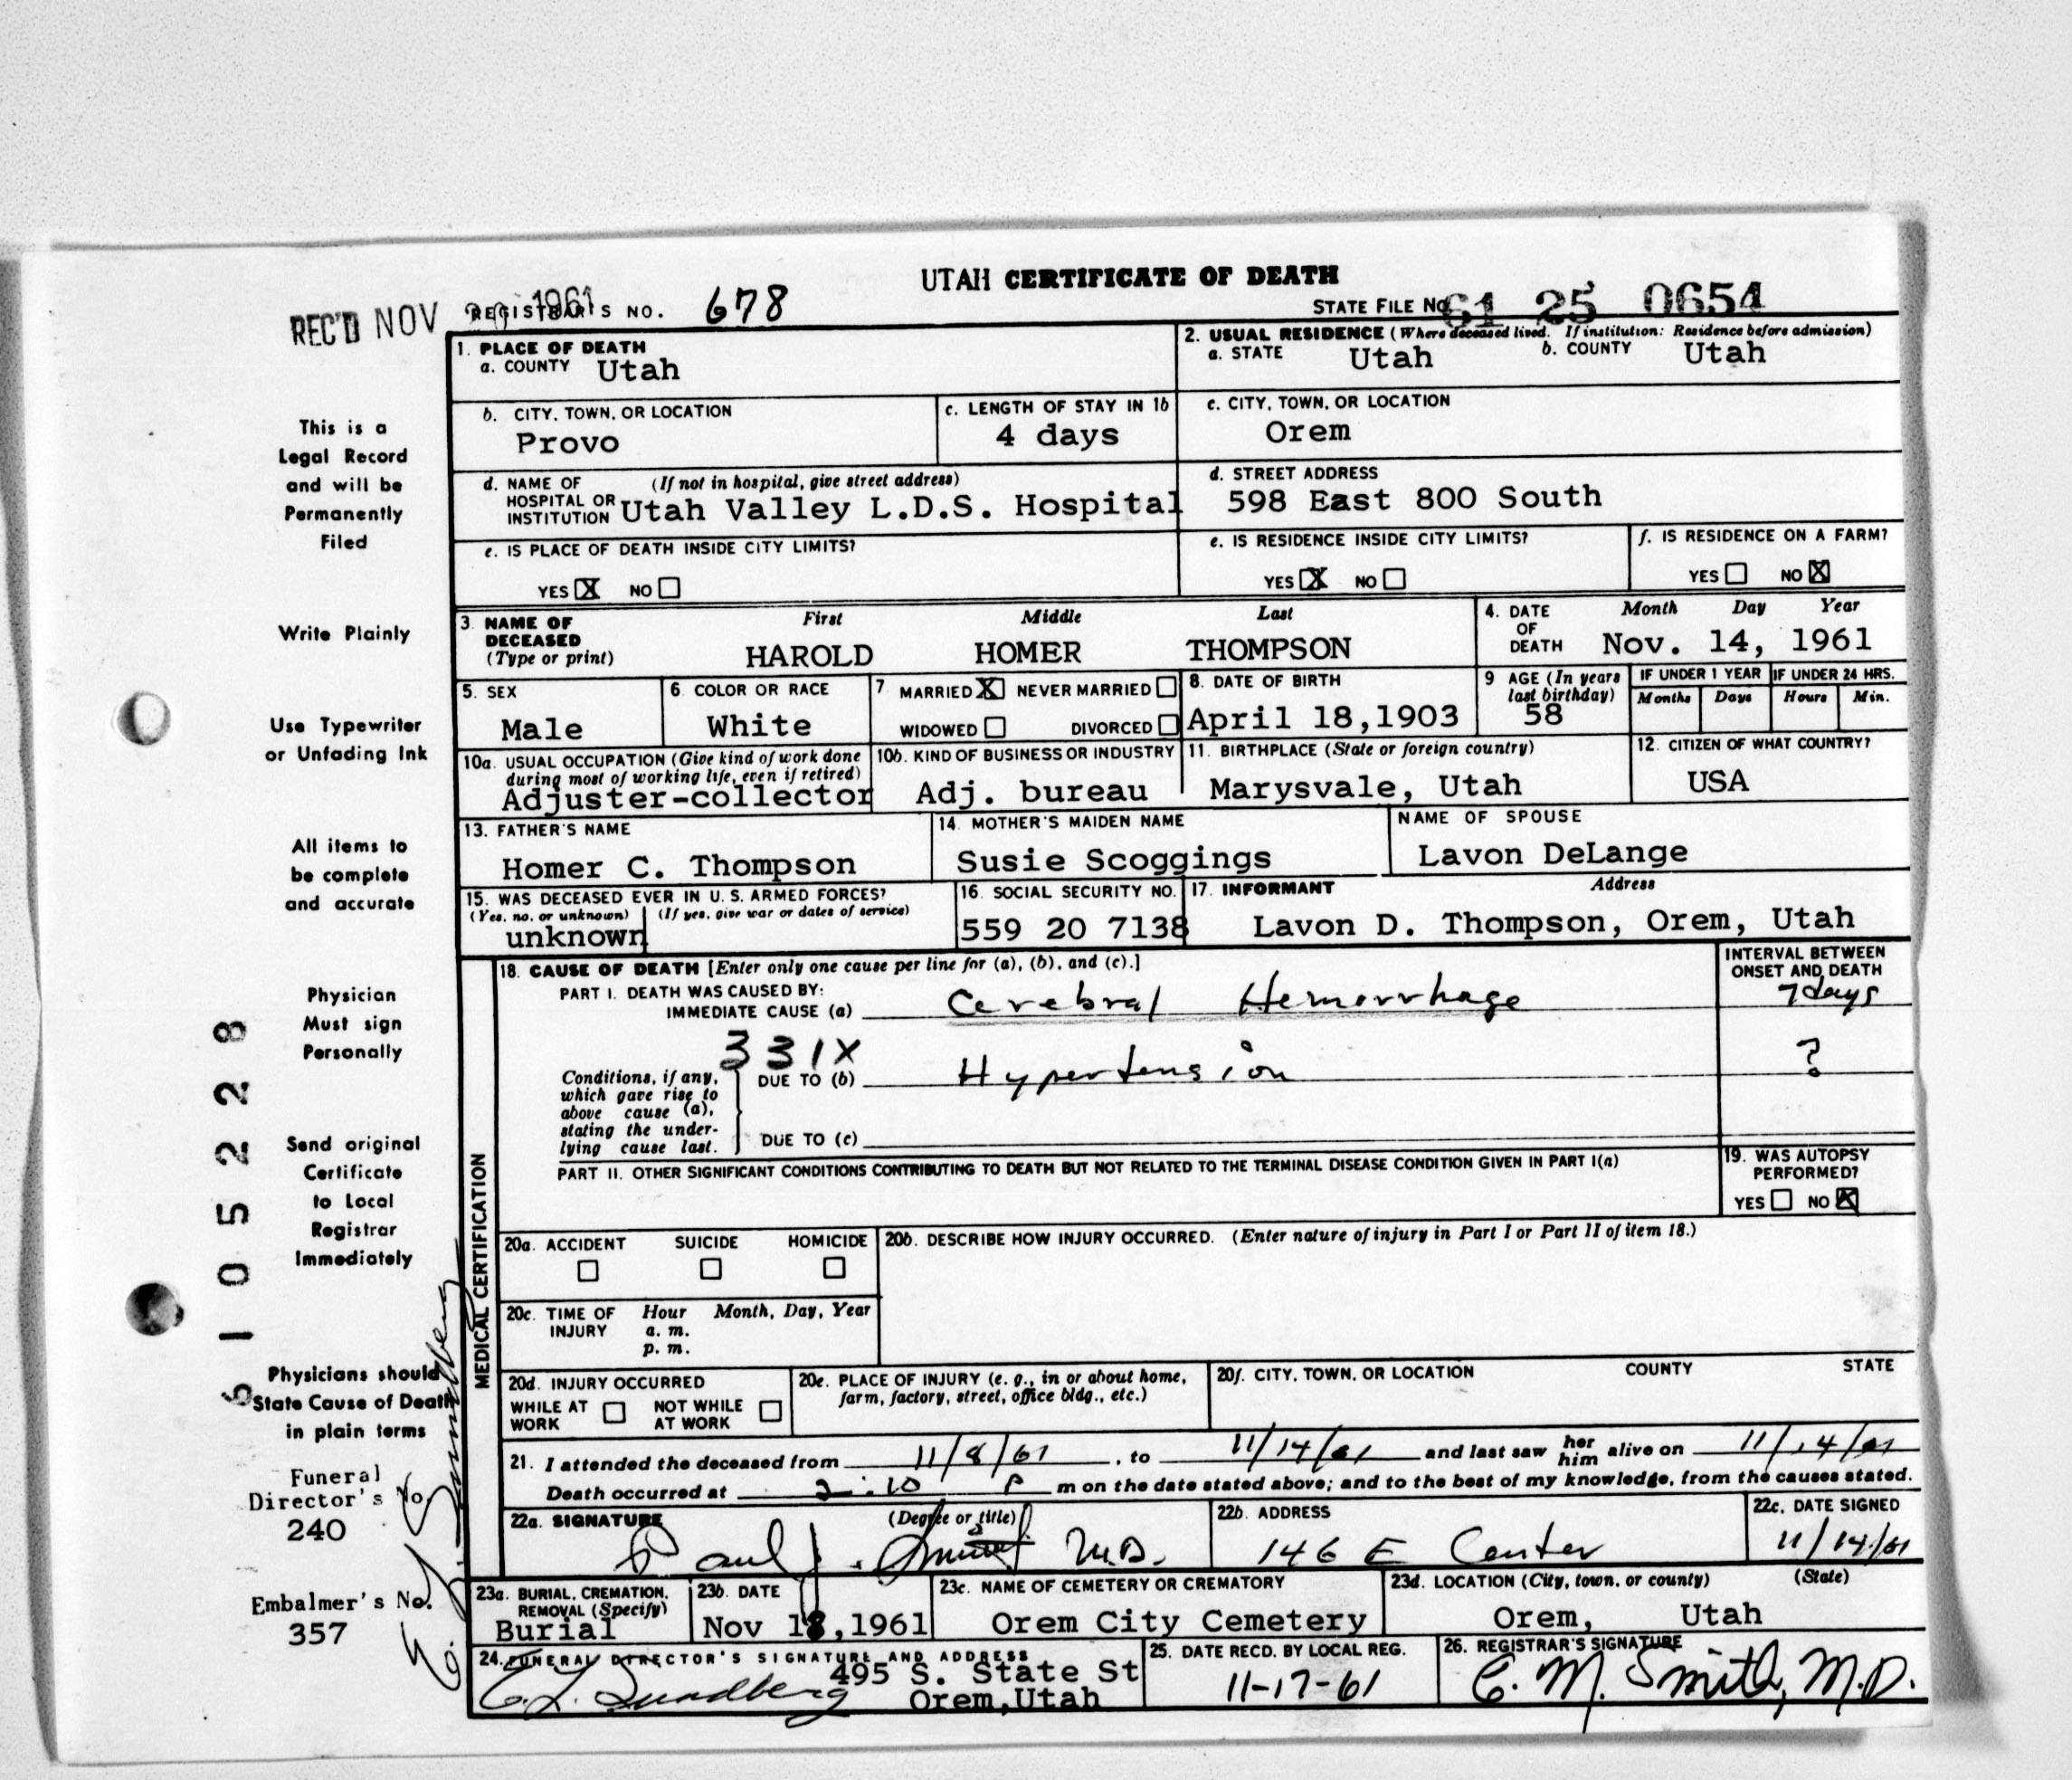 UTAH CERTIFICATE OF DEATH
REC'D NOV 1961 REGISTRAR'S NO. 678 STATE FILE NO. 61 25 0654
1. PLACE OF DEATH
a. COUNTY Utah
2. USUAL RESIDENCE (Where deceased lived. If institution: Residence before admission)
a. STATE Utah b. COUNTY Utah
b. CITY, TOWN, OR LOCATION
Provo
c. LENGTH OF STAY IN 1b
4 days
c. CITY, TOWN, OR LOCATION
Orem
d. NAME OF (If not in hospital, give street address)
HOSPITAL OR
INSTITUTION Utah Valley L.D.S. Hospital
d. STREET ADDRESS
598 East 800 South
e. IS PLACE OF DEATH INSIDE CITY LIMITS?
YES X NO
e. IS RESIDENCE INSIDE CITY LIMITS?
YES X NO
f. IS RESIDENCE ON A FARM?
YES NO X
3. NAME OF DECEASED
(Type or print)
First Middle Last
HAROLD HOMER THOMPSON
4. DATE OF DEATH
Month Day Year
Nov. 14, 1961
5. SEX
Male
6. COLOR OR RACE
White
7 MARRIED X NEVER MARRIED
WIDOWED DIVORCED
8. DATE OF BIRTH
April 18,1903
9 AGE (In years
last birthday)
58
IF UNDER 1 YEAR
Months Days
IF UNDER 24 HRS.
Hours Min.
10a. USUAL OCCUPATION (Give kind of work done
during most of working life, even if retired)
Adjuster-collector
10b. KIND OF BUSINESS OR INDUSTRY
Adj. bureau
11. BIRTHPLACE (State or foreign country)
Marysvale, Utah
12. CITIZEN OF WHAT COUNTRY?
USA
13. FATHER'S NAME
Homer C. Thompson
14. MOTHER'S MAIDEN NAME
Susie Scoggings
NAME OF SPOUSE
Lavon DeLange
15. WAS DECEASED EVER IN U. S. ARMED FORCES?
(Yes, no, or unknown) (If yes, give war or dates of service)
unknown
16. SOCIAL SECURITY NO.
559 20 7138
17. INFORMANT Address
Lavon D. Thompson, Orem, Utah
MEDICAL CERTIFICATION
18. CAUSE OF DEATH [Enter only one cause per line for (a), (b), and (c).]
PART I. DEATH WAS CAUSED BY:
IMMEDIATE CAUSE (a) Cerebral Hemorrhage
INTERVAL BETWEEN
ONSET AND DEATH
7 days
331X
Conditions, if any,
which gave rise to
above cause (a),
stating the under-
lying cause last.
DUE TO (b) Hypertension ?
DUE TO (c)
PART II. OTHER SIGNIFICANT CONDITIONS CONTRIBUTING TO DEATH BUT NOT RELATED TO THE TERMINAL DISEASE CONDITION GIVEN IN PART I(a)
19. WAS AUTOPSY
PERFORMED?
YES NO X
20a. ACCIDENT SUICIDE HOMICIDE
20b. DESCRIBE HOW INJURY OCCURRED. (Enter nature of injury in Part I or Part II of item 18.)
20c. TIME OF INJURY
Hour Month, Day, Year
a. m.
p. m.
20d. INJURY OCCURRED
WHILE AT WORK NOT WHILE AT WORK
20e. PLACE OF INJURY (e. g., in or about home,
farm, factory, street, office bldg., etc.)
20f. CITY, TOWN, OR LOCATION COUNTY STATE
21. I attended the deceased from 11/8/61, to 11/14/61 and last saw her him alive on 11/14/61
Death occurred at 2:10 P m on the date stated above; and to the best of my knowledge, from the causes stated.
22a. SIGNATURE (Degree or title)
Paul J. M.D.
22b. ADDRESS
146 E Center
22c. DATE SIGNED
11/14/61
23a. BURIAL, CREMATION,
REMOVAL (Specify)
Burial
23b. DATE
Nov 18,1961
23c. NAME OF CEMETERY OR CREMATORY
Orem City Cemetery
23d. LOCATION (City, town, or county) (State)
Orem, Utah
24. FUNERAL DIRECTOR'S SIGNATURE AND ADDRESS
E. L. Sundberg 495 S. State St
Orem,Utah
25. DATE RECD. BY LOCAL REG.
11-17-61
26. REGISTRAR'S SIGNATURE
E. M. Smith, M.D.
This is a
Legal Record
and will be
Permanently
Filed
Write Plainly
Use Typewriter
or Unfading Ink
All items to
be complete
and accurate
Physician
Must sign
Personally
Send original
Certificate
to Local
Registrar
Immediately
Physicians should
State Cause of Death
in plain terms
Funeral
Director's No.
240
Embalmer's No.
357
E. L. Sundberg
6105228